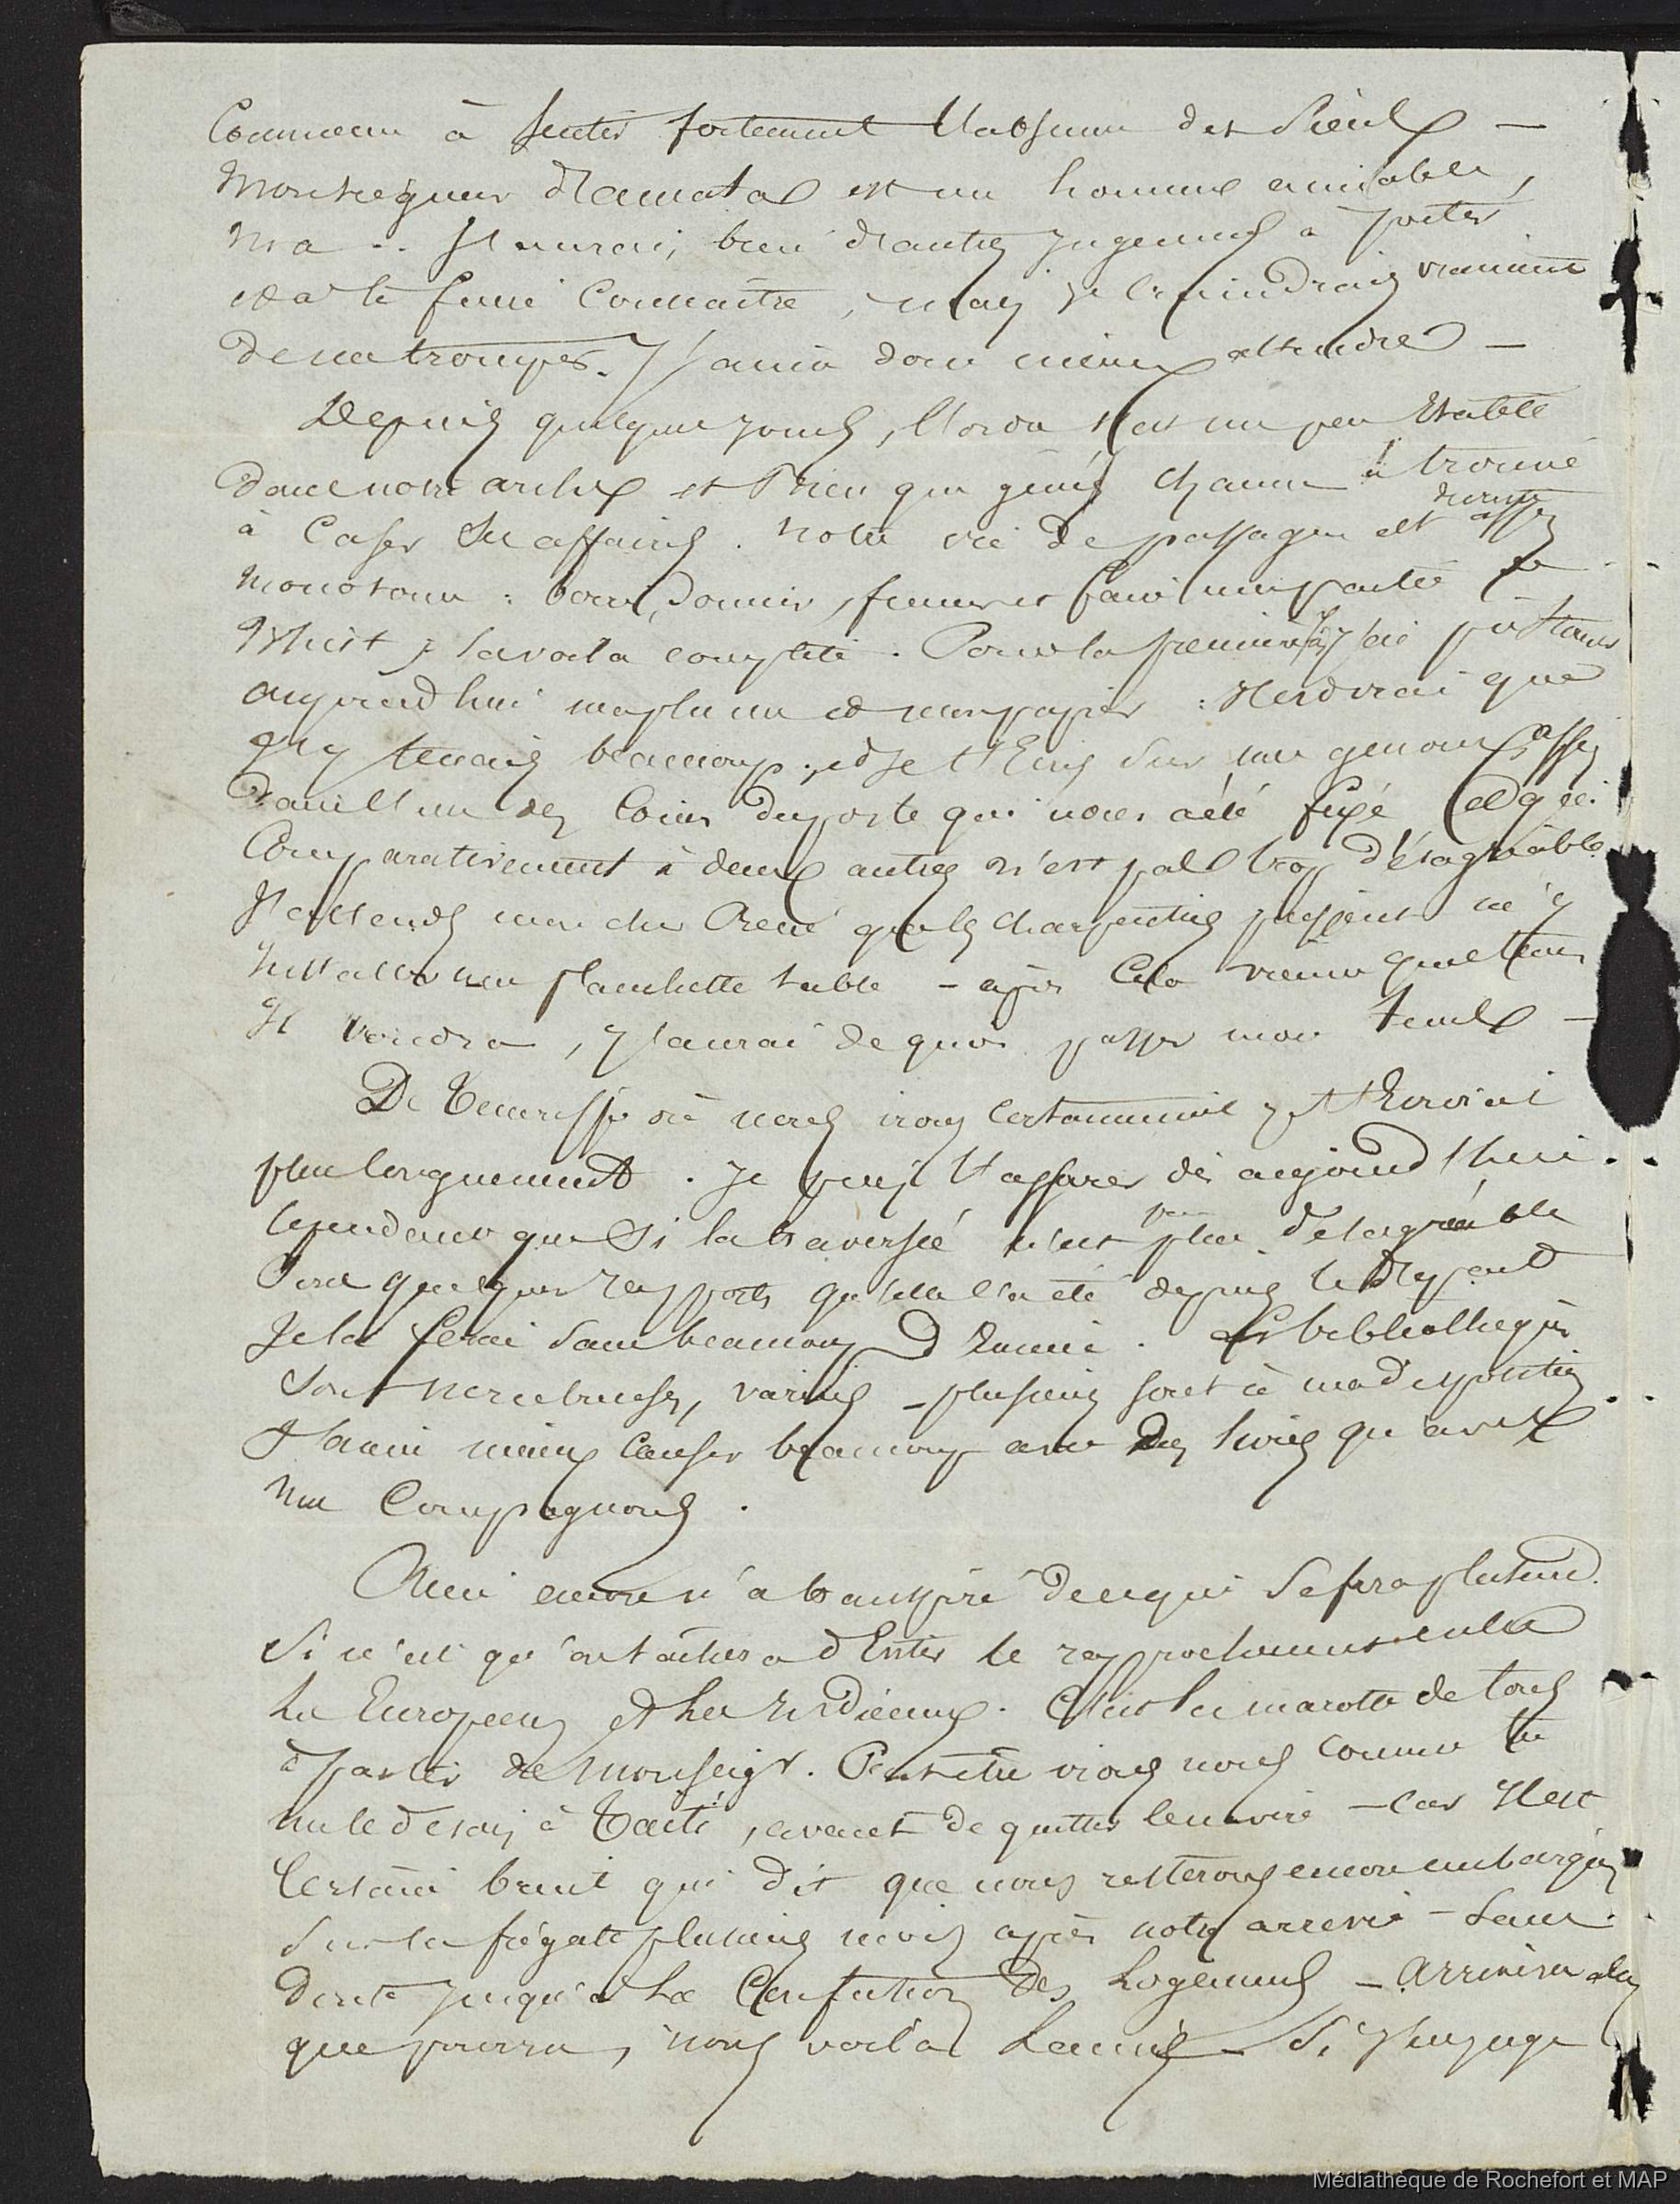 Commence à sentir fortement l'absence des siens —
Monseigneur d'Amata est un homme aimable,
Mra .. J'aurai, bien d'autres jugements à porter
et à te faire connaître, mais je craindrais vraiment
de me tromper. J'aime donc mieux attendre —
Depuis quelques jours, l'ordre s'est un peu établi
dans notre arche et bien que gênés chacun a trouvé
à caser ses affaires. Notre vie de passagers est assez
monotone : boire, dormir, fumer et faire une partie de
Whist, la voilà complète. Pour la première fois j'ai pu tenir
aujourd'hui ma plume et mon papier : Il est vrai que
j'y tenais beaucoup, et je t'écris sur mes genoux, assis
dans l'un des coins du poste qui nous a été fixé et qui
Comparativement à deux autres n'est pas trop désagréable.
J'attends mon cher René que les charpentiers puissent m'y
installer une planchette table — après cela vienne quel temps
Il voudra, j'aurai de quoi passer mon temps —
De Ténériffe où nous irons certainement je t'écrirai
plus longuement. Je puis t'assurer dès aujourd'hui
cependant que si la traversée n'est pas plus désagréable
sous quelques rapports qu'elle l'a été depuis le départ
Je la ferai sans beaucoup d'ennui. Les bibliothèques
sont nombreuses, variées — plusieurs sont à ma disposition
J'aime mieux causer beaucoup avec des livres qu'avec
mes Compagnons.
Rien encore n'a transpiré de ce qui se fera plus tard.
Si ce n'est qu'on tâchera d'éviter le rapprochement entre
les Européens et les Indiennes. C'est la marotte de tous
à partir de Monseigr. Peut être irons nous comme tu
me le disais à Taïti, avant de quitter le navire — car Il est
certain bruit qui dit que nous resterons encore embarqués
sur la frégate plusieurs mois après notre arrivée — sans
doute jusqu'à la Confection des logements — Arrivera alors
que pourra, nous voilà lancés — Si j'en juge